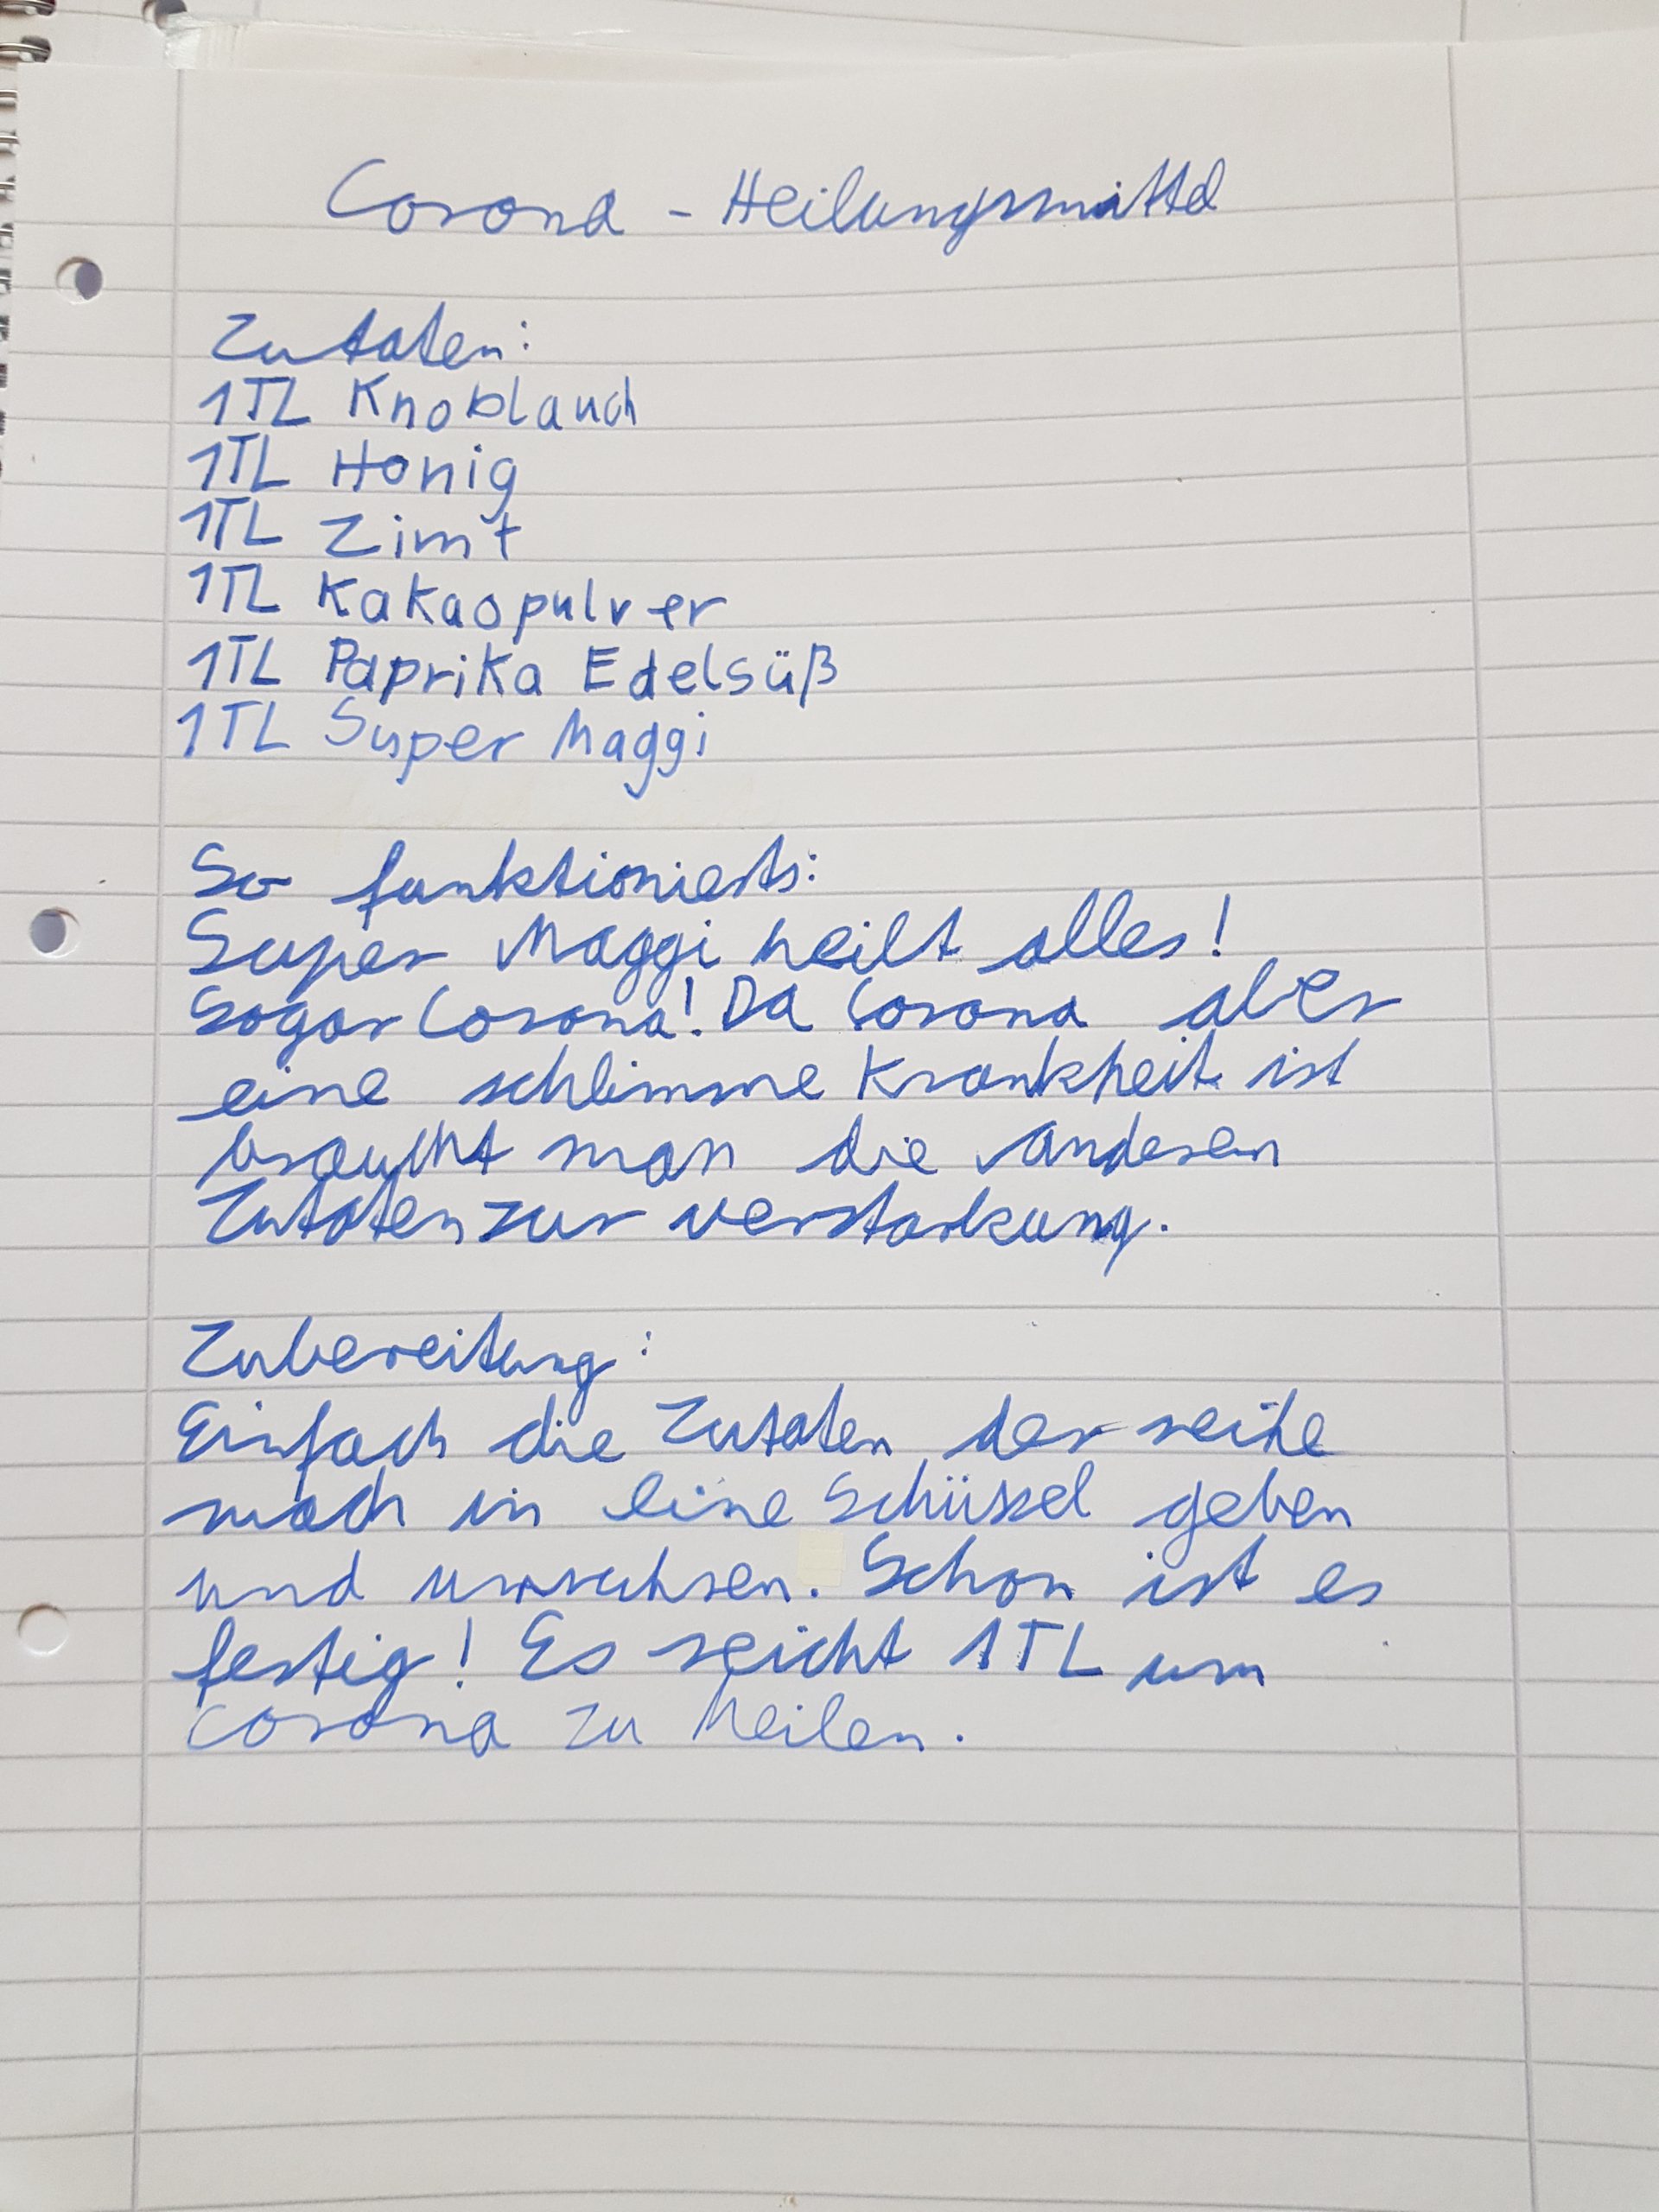 Corona - Heilungsmittel
Zutaten:
1TL Knoblauch
1TL Honig
1TL Zimt
1TL Kakaopulver
1TL Paprika Edelsüß
1TL Super Maggi
So funktionierts:
Super Maggi heilt alles!
Sogar Corona! Da Corona aber
eine schlimme Krankheit ist
braucht man die anderen
Zutaten zur verstarkung.
Zubereitung:
Einfach die Zutaten der reihe
nach in eine Schüssel geben
und umrühren. Schon ist es
fertig! Es reicht 1TL um
corona zu heilen.